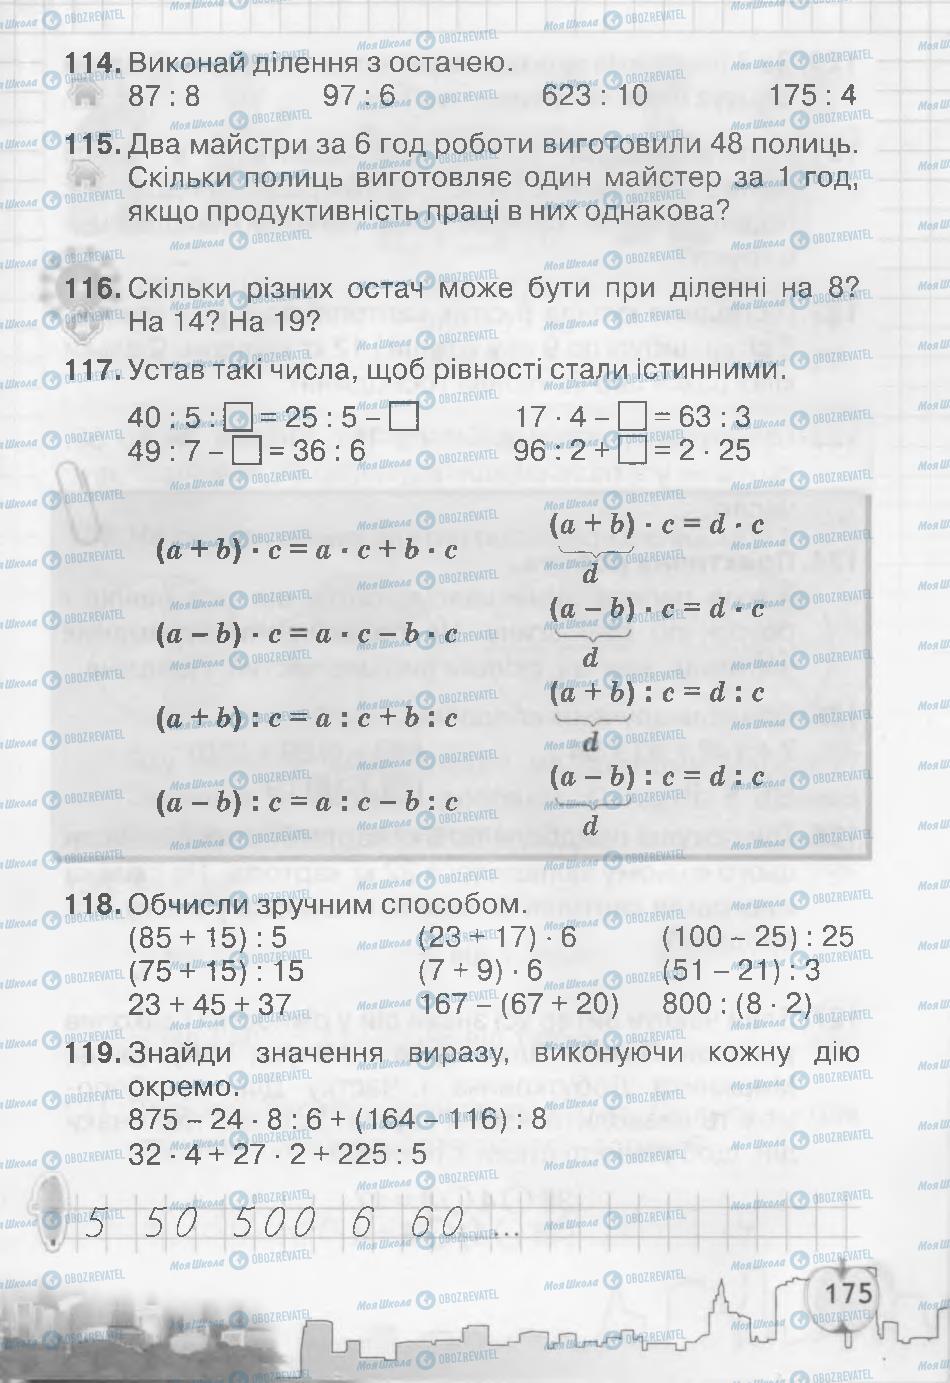 114. Виконай ділення з остачею.
87 : 8 97 : 6 623 : 10 175 : 4
115. Два майстри за 6 год роботи виготовили 48 полиць.
Скільки полиць виготовляє один майстер за 1 год,
якщо продуктивність праці в них однакова?
116. Скільки різних остач може бути при діленні на 8?
На 14? На 19?
117. Устав такі числа, щоб рівності стали істинними.
40 : 5 : □ = 25 : 5 – □ 17 · 4 – □ = 63 : 3
49 : 7 – □ = 36 : 6 96 : 2 + □ = 2 · 25
(a + b) · c = a · c + b · c
(a + b) · c = d · c
d
(a – b) · c = a · c – b · c
(a – b) · c = d · c
d
(a + b) : c = a : c + b : c
(a + b) : c = d : c
d
(a – b) : c = a : c – b : c
(a – b) : c = d : c
d
118. Обчисли зручним способом.
(85 + 15) : 5 (23 + 17) · 6 (100 – 25) : 25
(75 + 15) : 15 (7 + 9) · 6 (51 – 21) : 3
23 + 45 + 37 167 – (67 + 20) 800 : (8 · 2)
119. Знайди значення виразу, виконуючи кожну дію
окремо.
875 – 24 · 8 : 6 + (164 – 116) : 8
32 · 4 + 27 · 2 + 225 : 5
5 50 500 6 60 ...
175
МояШкола OBOZREVATEL